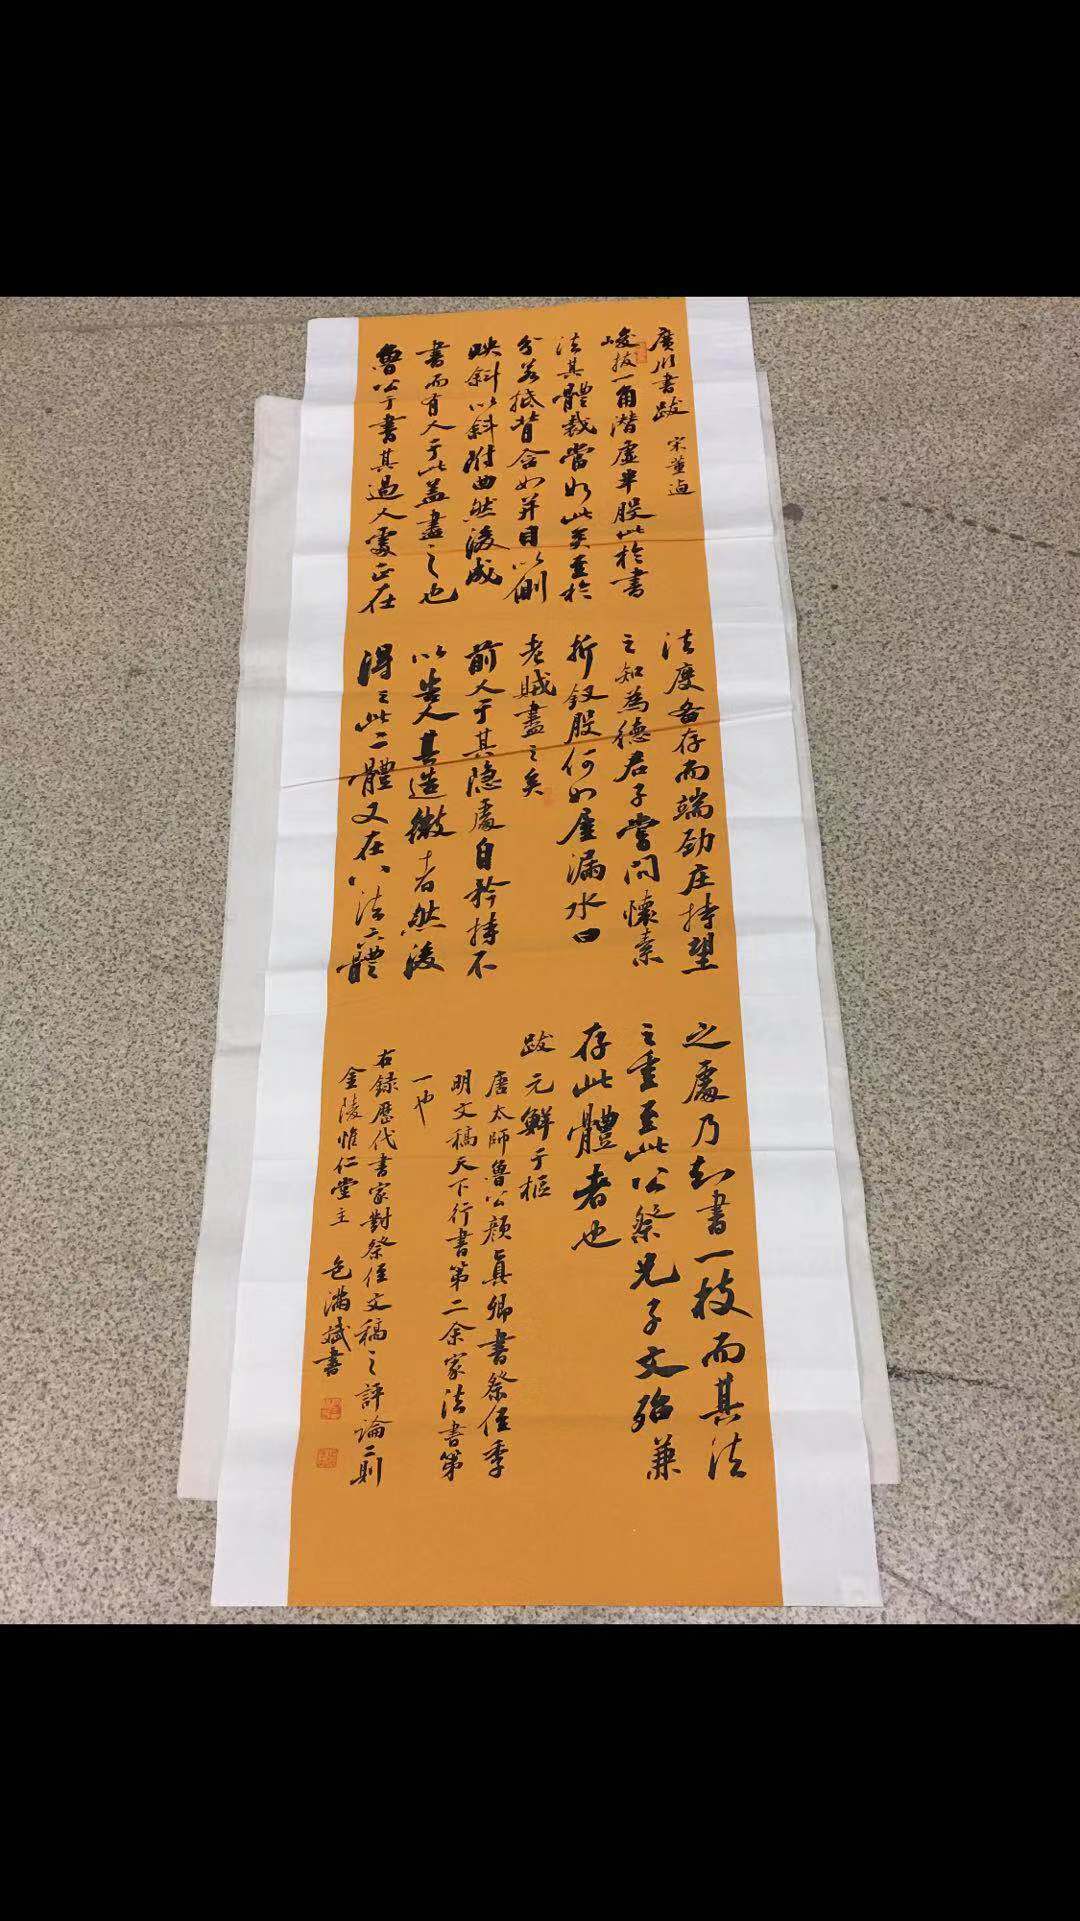 廣川書跋 宋董逌
峻拔一角潛虛半股此於書
法其體裁當如此矣至於
分若抵背合如并目以側
映斜以斜附曲然後成
書而有人于此蓋盡之也
魯公于書其過人處正在
法度备存而端劲庄持望
之知為德君子嘗問懷素
折釵股何如屋漏水曰
老賊盡之矣
前人于其隐處自矜持不
以告人其造微者然後
得之此二體又在八法六體
之處乃知書一枝而其法
之重至此公祭兄子文殆兼
存此體者也
跋元鮮于樞
唐太師魯公顔真卿書祭侄季
明文稿天下行書第二余家法書第
一也
右録歷代書家對祭侄文稿之評論二則
金陵惟仁堂主 包满斌書